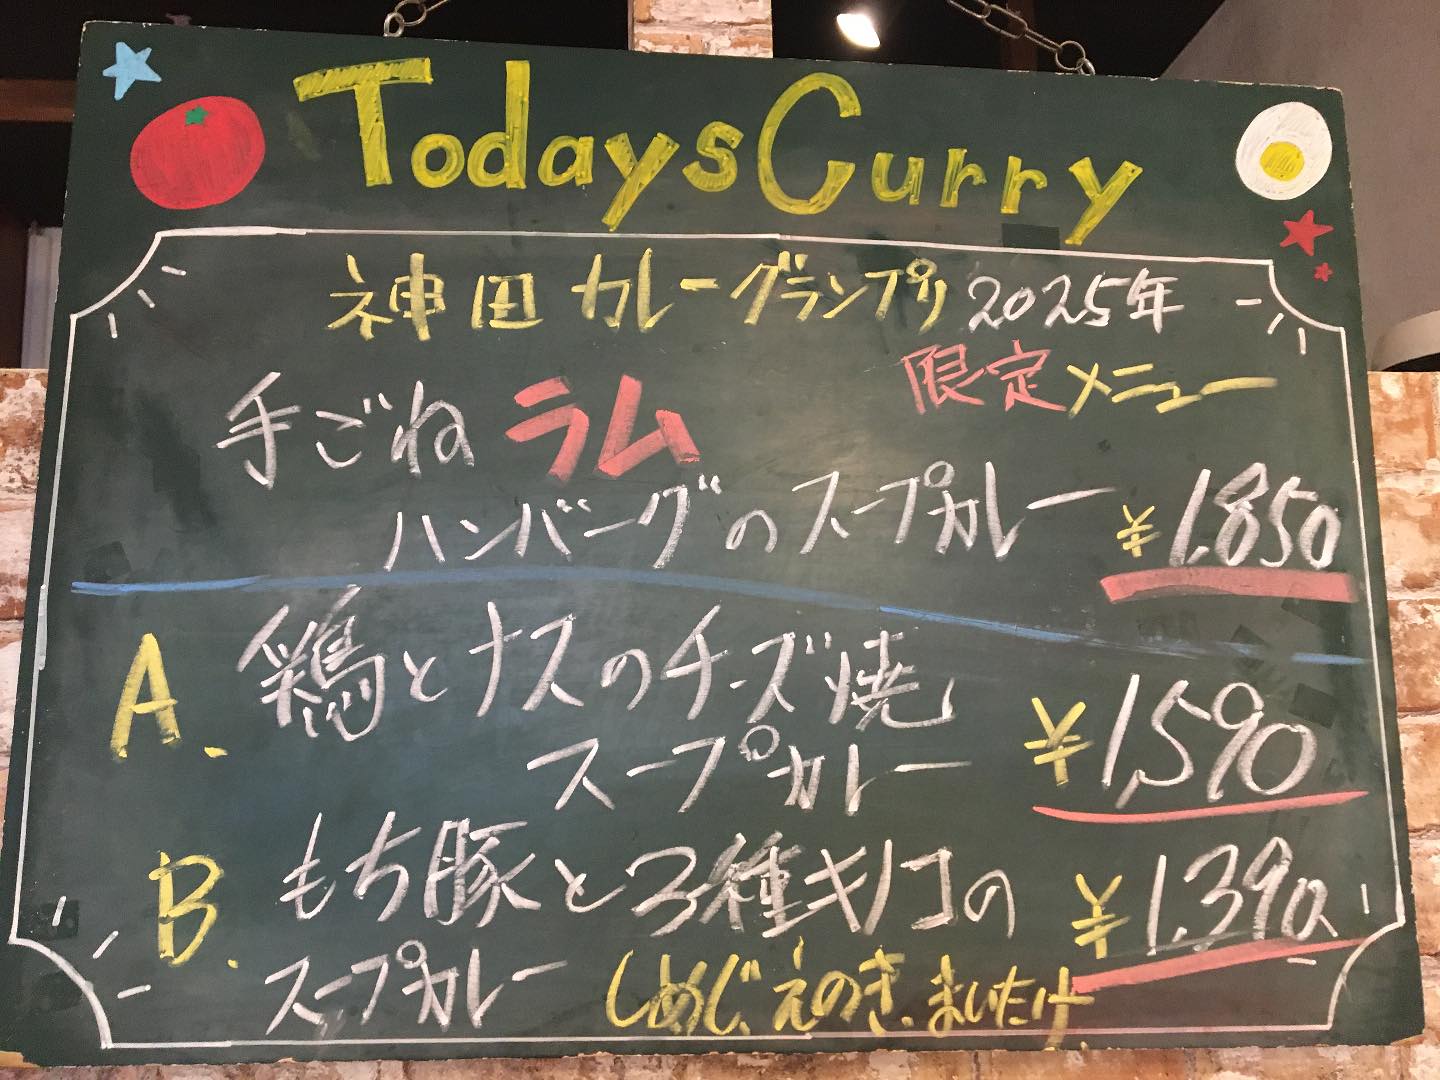 Todays Curry
神田カレーグランプリ2025年
限定メニュー
手ごね ラム
ハンバーグのスープカレー ¥1,850
A. 鶏とナスのチーズ焼
スープカレー ¥1,590
B. もち豚と3種キノコの ¥1,390
スープカレー しめじ、えのき、まいたけ